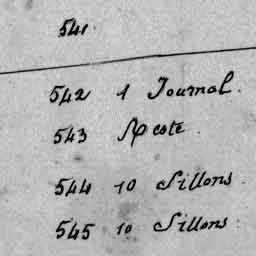 541.
542 1 Journal.
543 Reste.
544 10 Sillons.
545 10 Sillons.